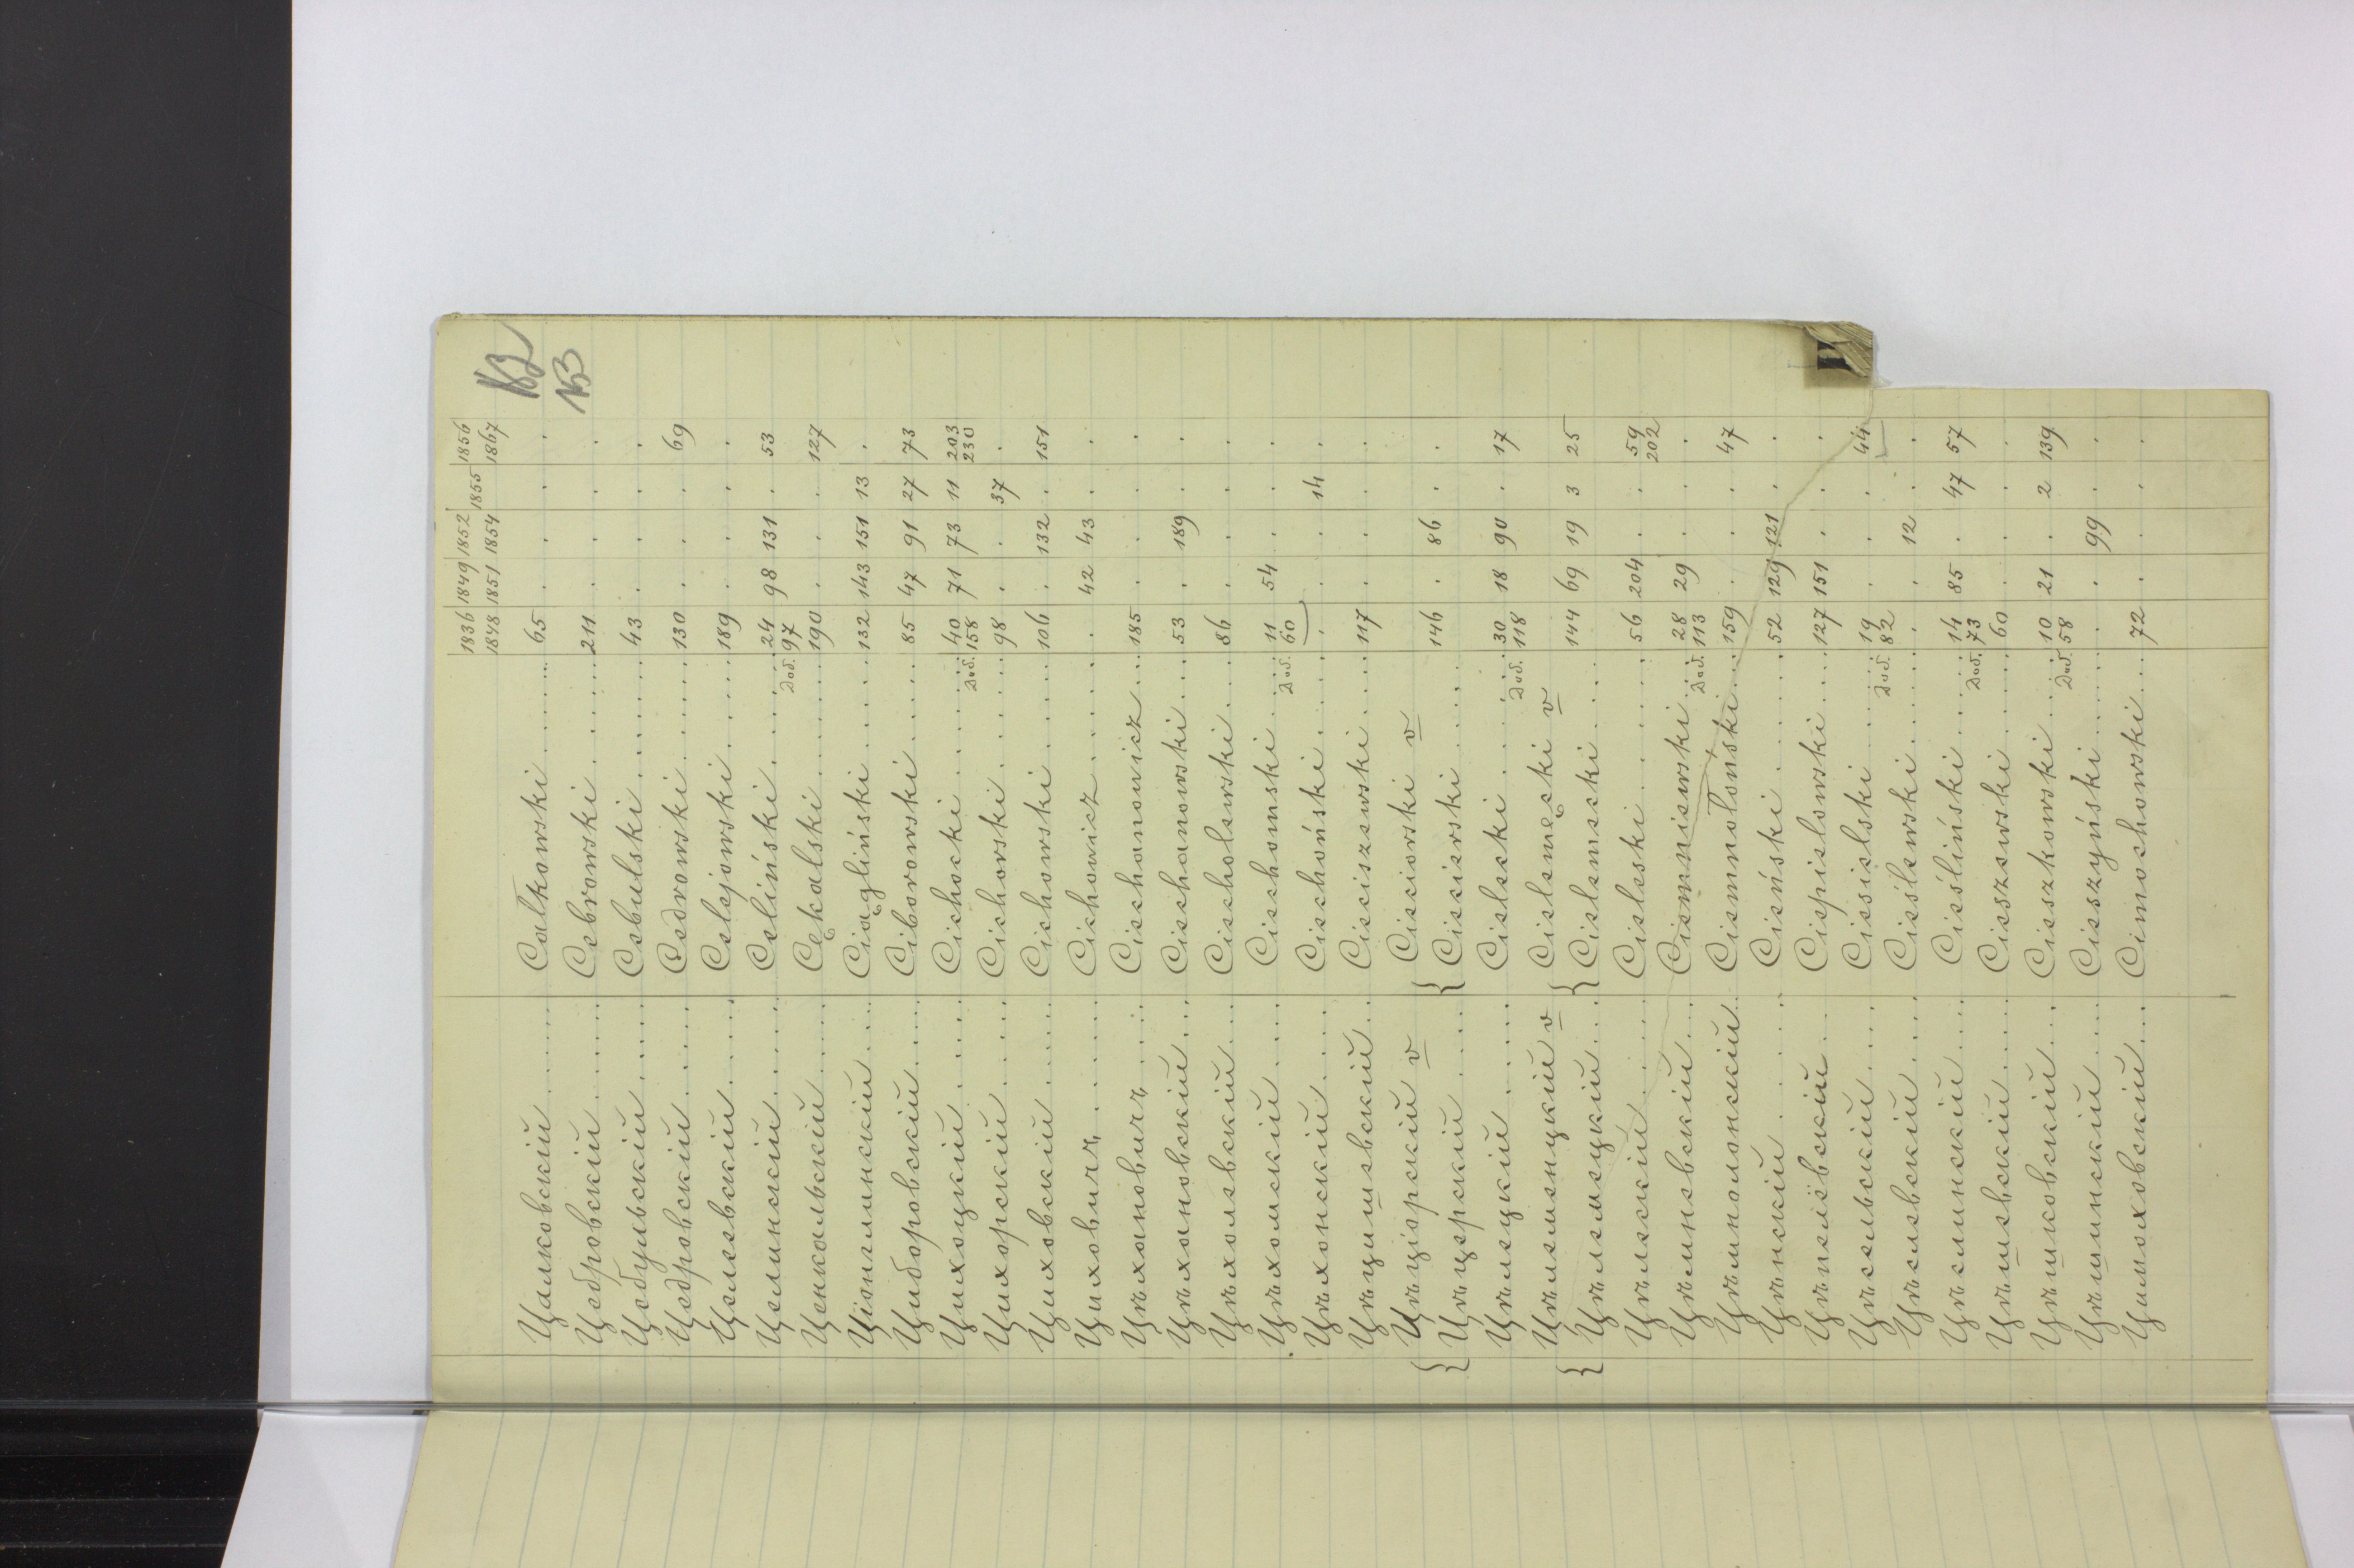 1836 1849 1852 1855 1856
1848 1851 1854 1867
Цалковскій Całkowski 65 . . . .
Цебровскій Cebrowski 211 . . . .
Цебульскій Cebulski 43 . . . .
Цедровскій Cedrowski 130 . . . 69
Целевскій Celejowski 189 . . . .
Целинскій Celiński 24 98 131 . 53
Доб. 97
Ценкальскій Cękalski 190 . . . 127
Ціонглинскій Ciągliński 132 143 151 13 .
Циборовскій Ciborowski 85 47 91 27 73
Цихоцкій Cichocki 40 71 73 11 203
Доб. 158 230
Цихорскій Cichorski 98 . . 37 .
Циховскій Cichowski 106 . 132 . 151
Циховичъ Cichowicz . 42 43 . .
Цѣхановичъ Ciechanowicz 185 . . . .
Цѣхановскій Ciechanowski 53 . 189 . .
Цѣхолевскій Ciecholewski 86 . . . .
Цѣхомскій Ciechomski 11 54 . . .
Доб. 60
Цѣхонскій Ciechoński . . . 14 .
Цѣцишевскій Cieciszewski 117 . . . .
Цѣціорскій v Cieciorski v
Цѣцерскій Ciecierski 146 . 86 . .
Цѣлецкій Cielecki 30 18 90 . 17
Доб. 118
Цѣлеменцкій v Cielemęcki v
Цѣлемецкій Cielemecki 144 69 19 3 25
Цѣлескій Cieleski 56 204 . . 59
202
Цѣмневскій Ciemniewski 28 29 . . .
Доб. 113
Цѣмнолонскій Ciemnołoński 159 . . . 47
Цѣнскій Cieński 52 129 121 . .
Цѣпелёвскій Ciepielowski 127 151 . . .
Цѣсельскій Ciesielski 19 . . . 44
Доб. 82
Цѣслевскій Cieślewski . . 12 . .
Цѣслинскій Cieśliński 14 85 . 47 57
Доб. 73
Цѣшевскій Cieszewski 60 . . . .
Цѣшковскій Cieszkowski 10 21 . 2 139
Доб. 58
Цѣшинскій Cieszyński . . 99 . .
Цимоховскій Cimochowski 72 . . . .